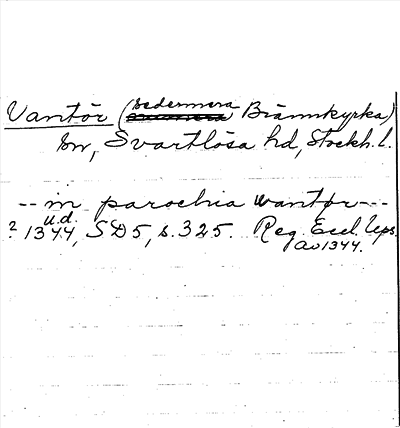 Vantör (sedermera Brännkyrka)
sn, Svartlösa hd, Stockh. l.
-- in parochia wantør ---
? 1344, u.d. SD5, s. 325. Reg. Eccl. Ups.
av 1344.